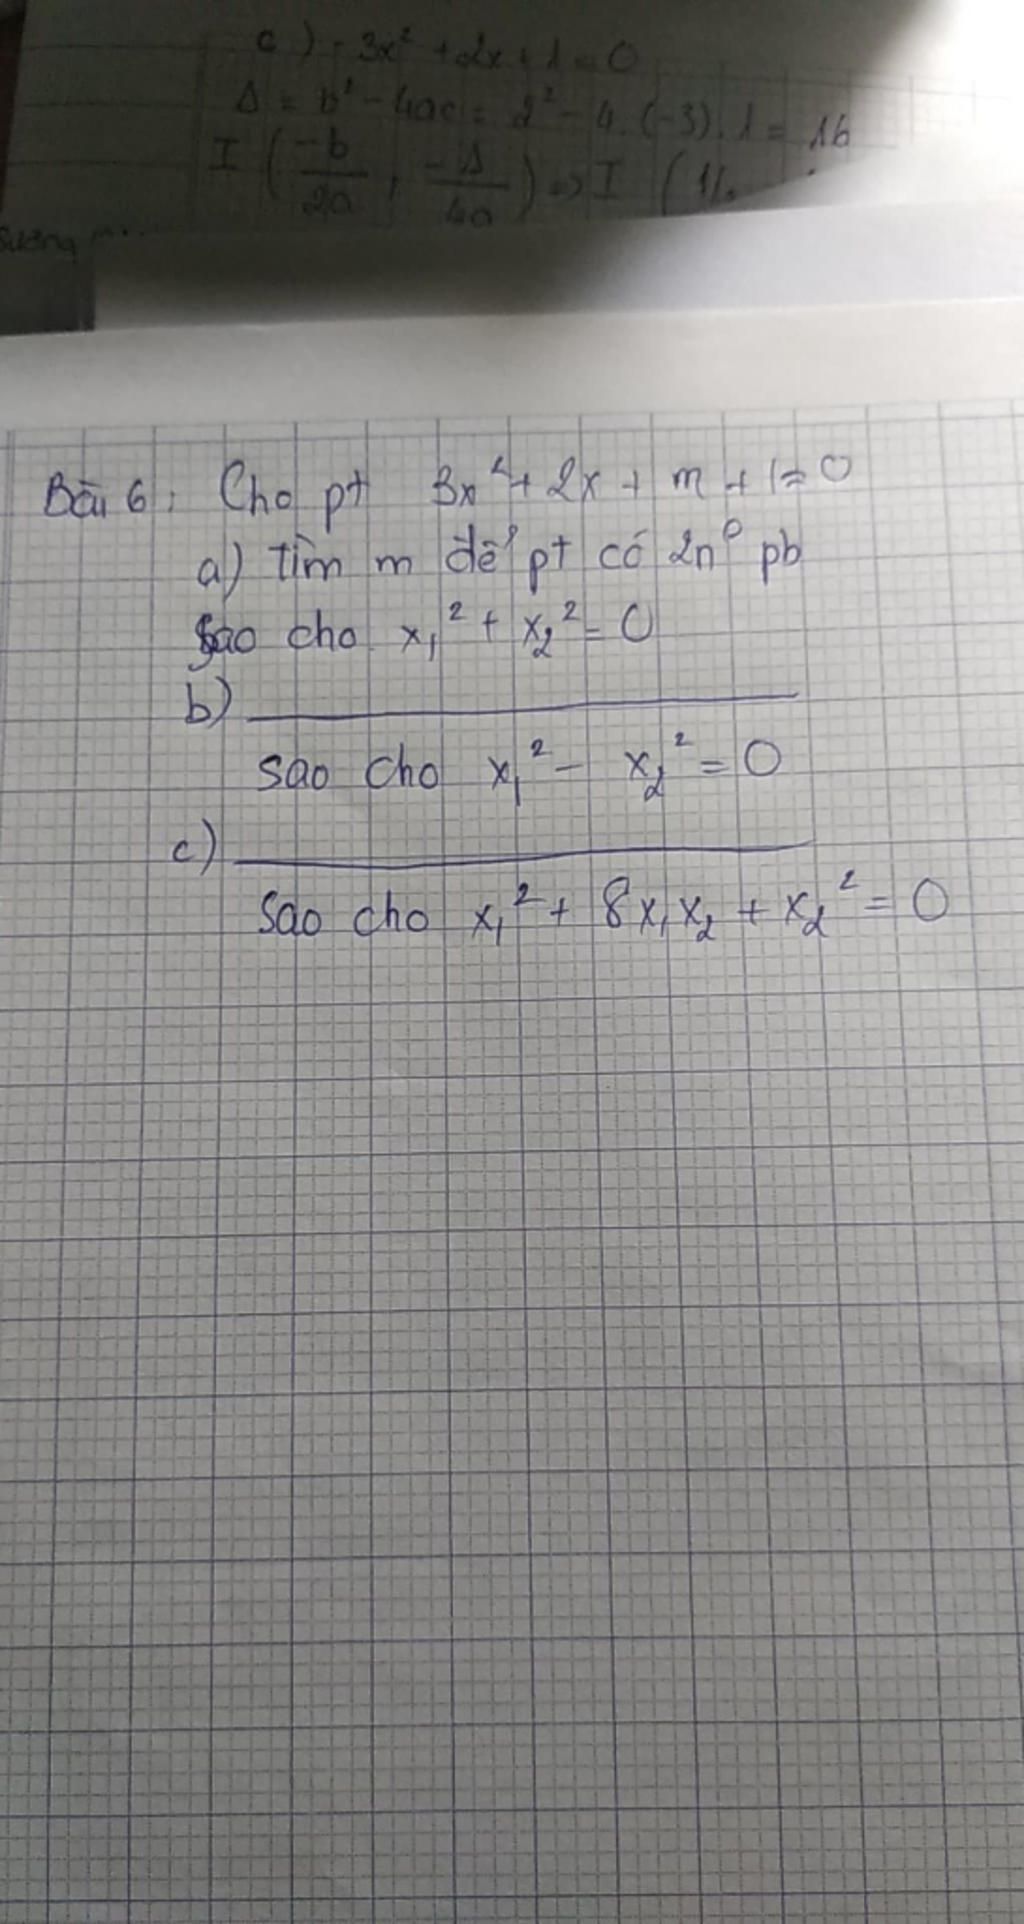 c) - 3x² + 2x + 1 = 0
Δ = b² - 4ac = 2² - 4. (-3). 1 = 16
I ( -b/2a , -Δ/4a ) => I ( 1/
Bài 6: Cho pt 3x² + 2x + m + 1 = 0
a) Tìm m để pt có 2n⁰ pb
Sao cho x₁² + x₂² = 0
b)
Sao cho x₁² - x₂² = 0
c)
Sao cho x₁² + 8x₁x₂ + x₂² = 0